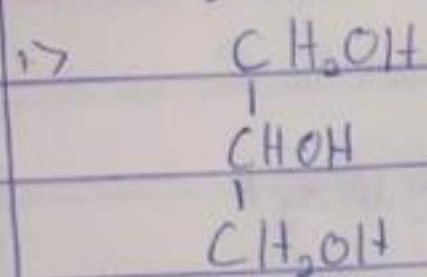 1> CH₂OH
|
CHOH
|
CH₂OH